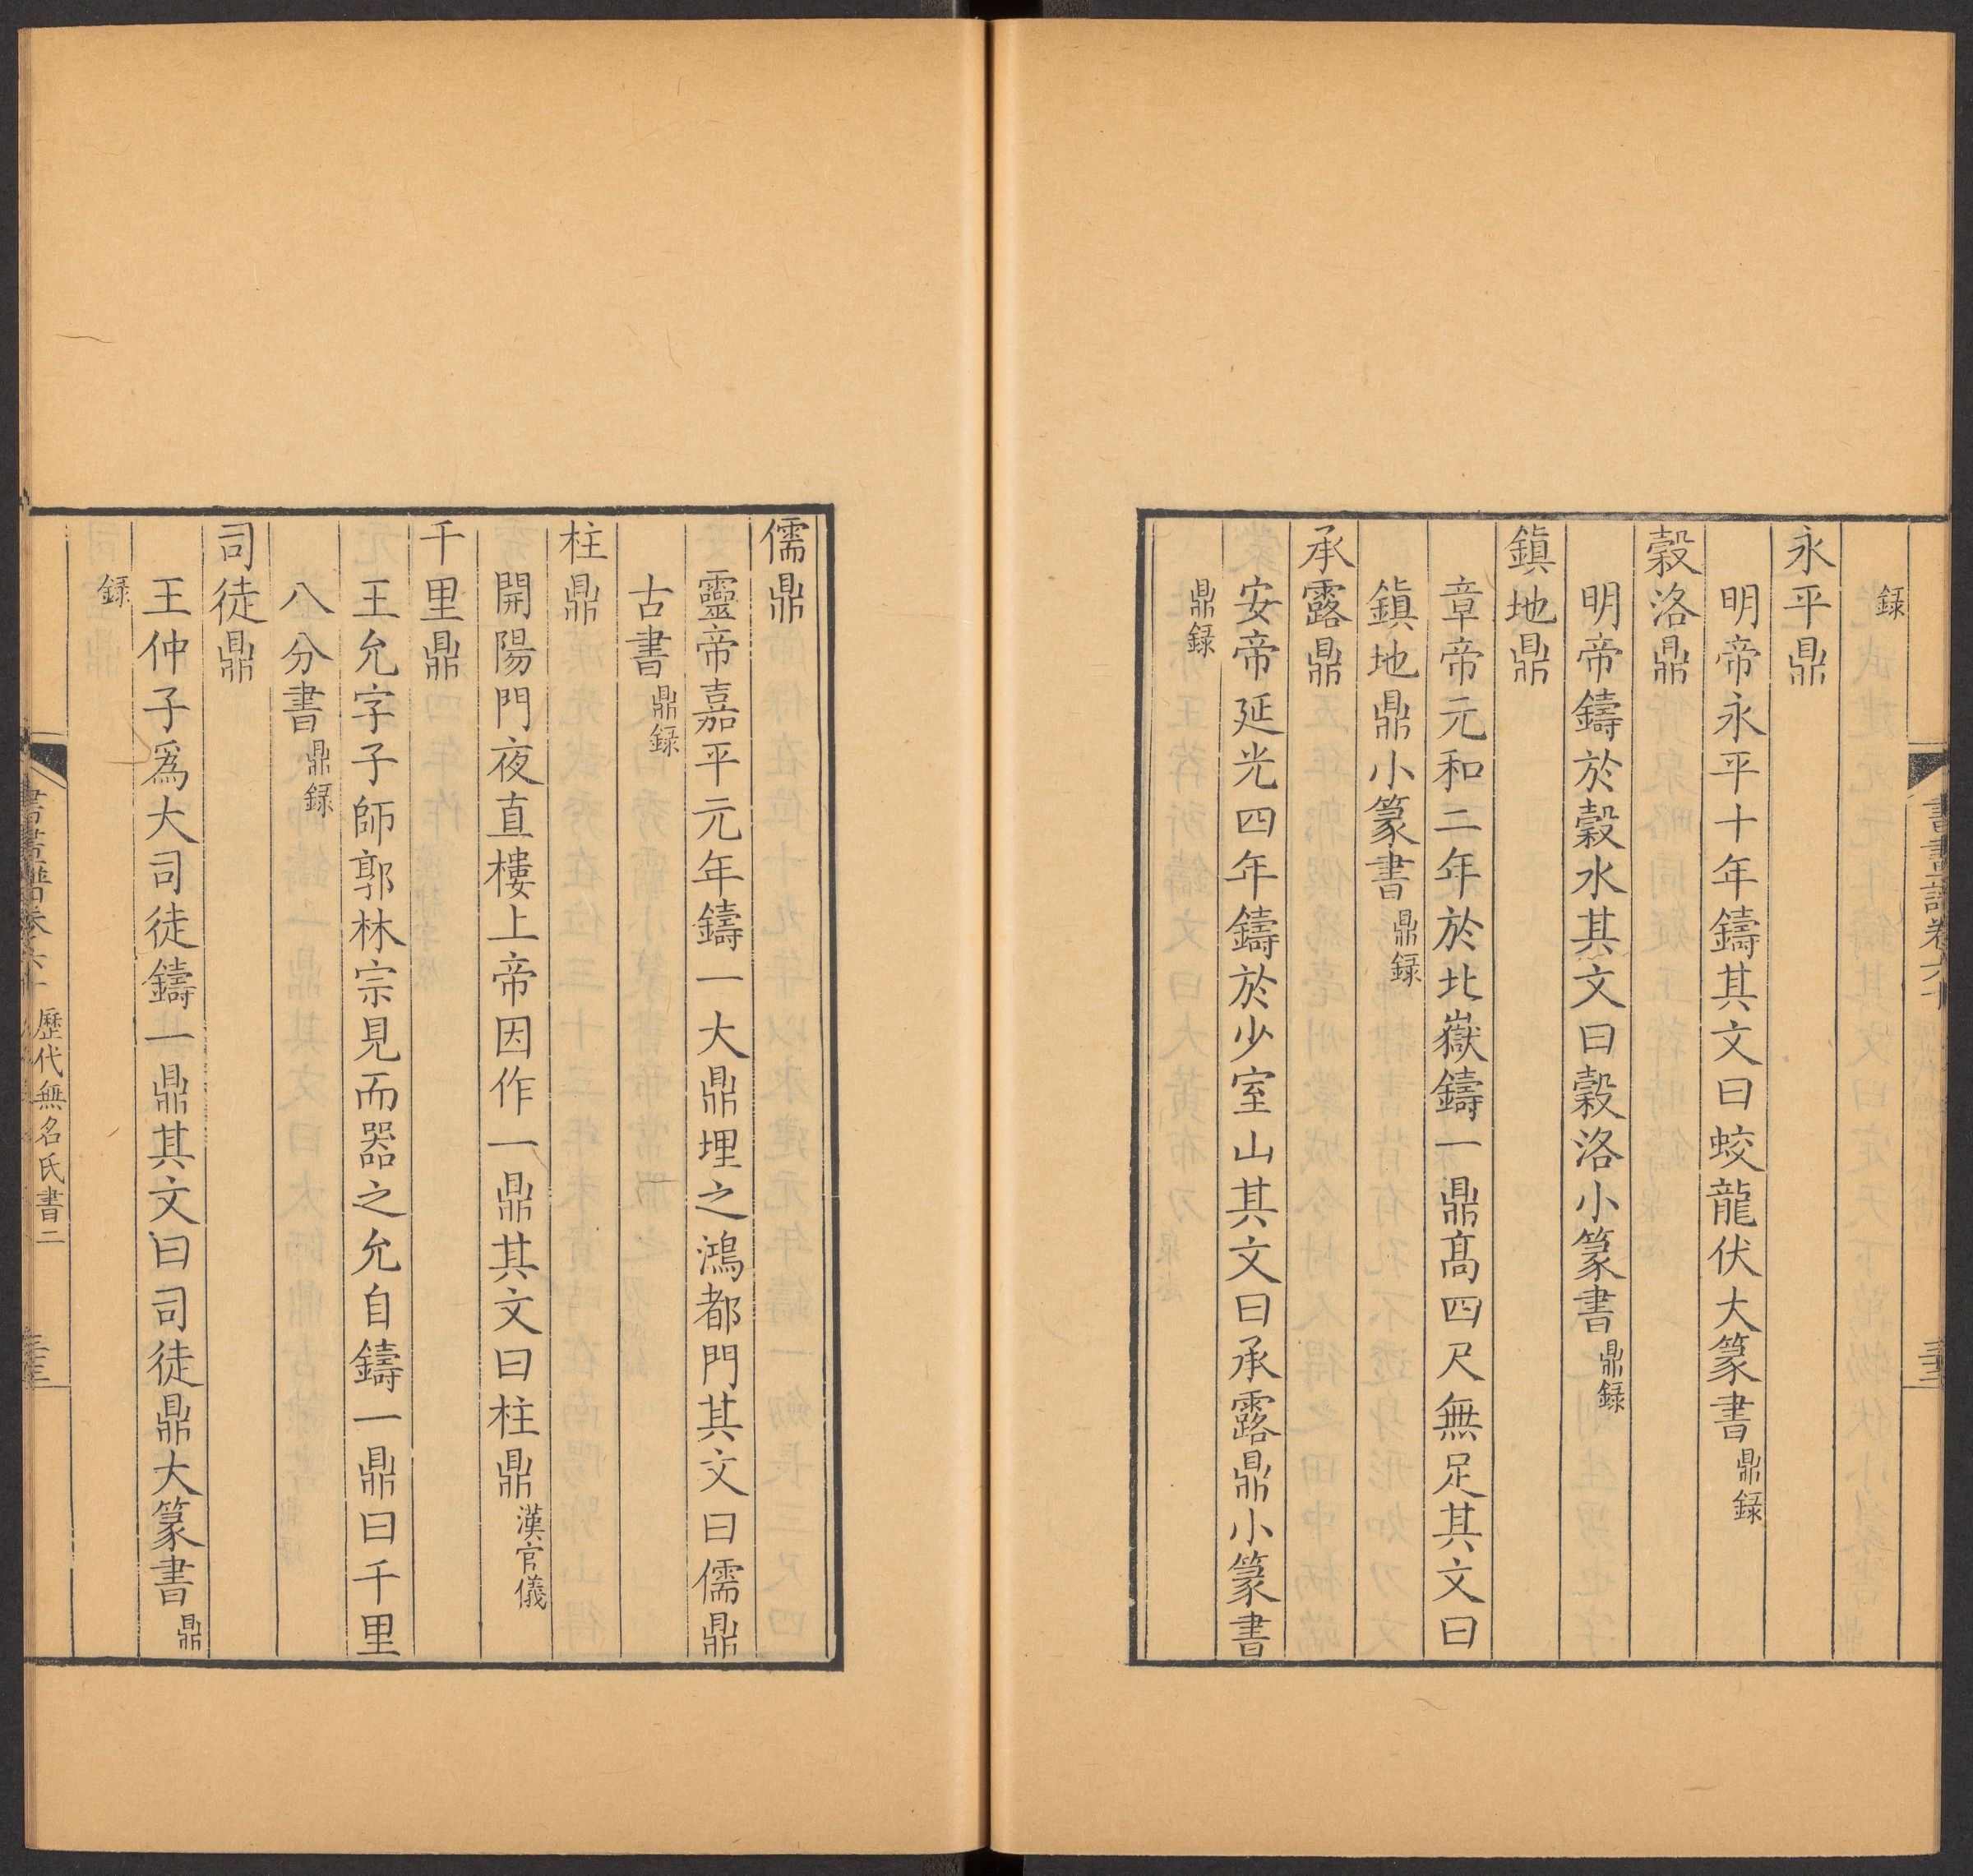 録
永平鼎
明帝永平十年鑄其文曰蛟龍伏大篆書鼎録
穀洛鼎
明帝鑄於穀水其文曰穀洛小篆書鼎録
鎮地鼎
章帝元和二年於北嶽鑄一鼎髙四尺無足其文曰
鎮地鼎小篆書鼎録
承露鼎
安帝延光四年鑄於少室山其文曰承露鼎小篆書
鼎録
儒鼎
靈帝嘉平元年鑄一大鼎埋之鴻都門其文曰儒鼎
古書鼎録
柱鼎
開陽門夜直樓上帝因作一鼎其文曰柱鼎漢官儀
千里鼎
王允字子師郭林宗見而器之允自鑄一鼎曰千里
八分書鼎録
司徒鼎
王仲子爲大司徒鑄一鼎其文曰司徒鼎大篆書鼎
録
歷代無名氏書二